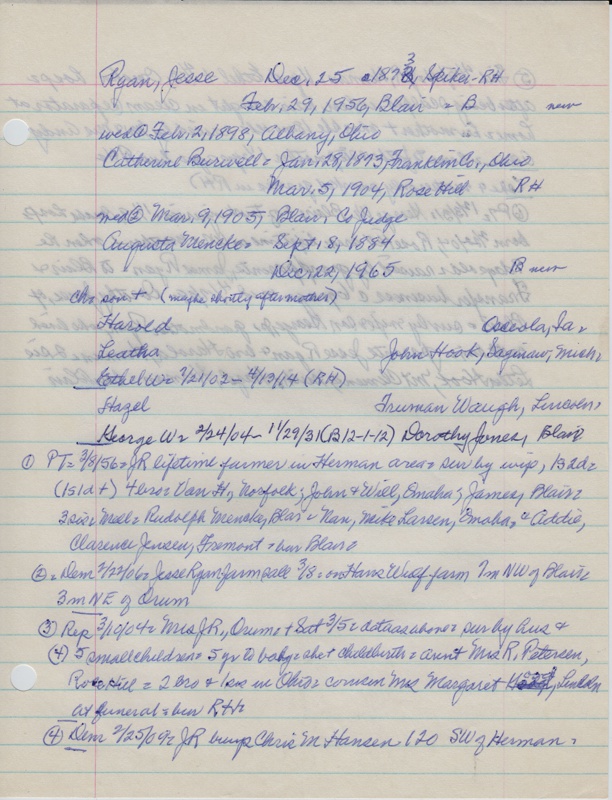 Ryan, Jesse Dec. 25 1873, Spiker - RH
Feb. 29, 1956, Blair = B new
wed ① Feb. 2, 1898, Albany, Ohio
Catherine Burwell = Jan. 28, 1873, Franklin Co., Ohio
Mar. 5, 1904, Rose Hill RH
wed ② Mar. 9, 1905, Blair, Co Judge
Augusta Mencke = Sept. 18, 1884
Dec. 22, 1965 B new
ch = son + (maybe shortly after mother)
Harold Osceola, Ia =
Leatha John Hook, Saginaw, Mich,
Ethel W = 7/21/02 - 4/13/14 (RH)
Hazel Truman Waugh, Lincoln =
George W = 2/24/04 - 11/29/31 (B 12-1-12) Dorothy Jones, Blair
① PT = 3/8/56 = JR lifetime farmer in Herman area = sur by wife, 1s 2d =
(1s 1d +) 4 bro = Van H, Norfolk; John & Will, Omaha; James, Blair =
3 sis = Mmel = Rudolph Mencke, Blair = Nan, Mike Larsen, Omaha = Addie,
Clarence Jensen, Fremont = bur Blair =
② = Dem 2/22/06 = Jesse Ryan farm sale 3/8 = on Hans Wulf farm 7m NW of Blair =
3m NE of Orum
③ Rep 3/10/04 = Mrs JR, Orum, + Sat 3/5 = data as above = sur by hus &
④ 5 small children = 5 yr to baby = abt childbirth = aunt Mrs R. Petersen,
Rose Hill = 2 bro & 1 sis in Ohio = cousin Mrs Margaret Lincoln
at funeral = bur RH
④ Dem 2/25/09 = JR buys Chris M Hansen 120 SW of Herman =